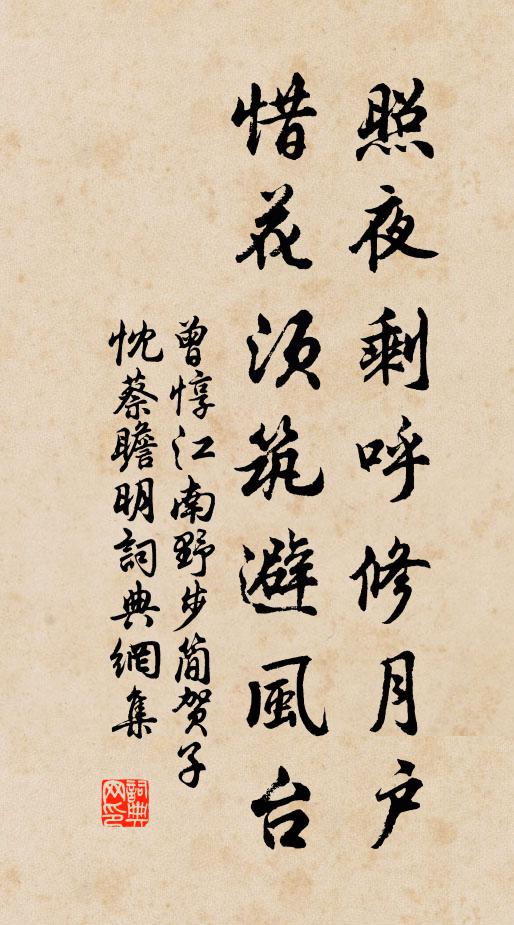 照夜剩呼修月户
惜花须筑避風台
曾惇江南野步简贺子
忱蔡瞻明詞典網集
詞典网印